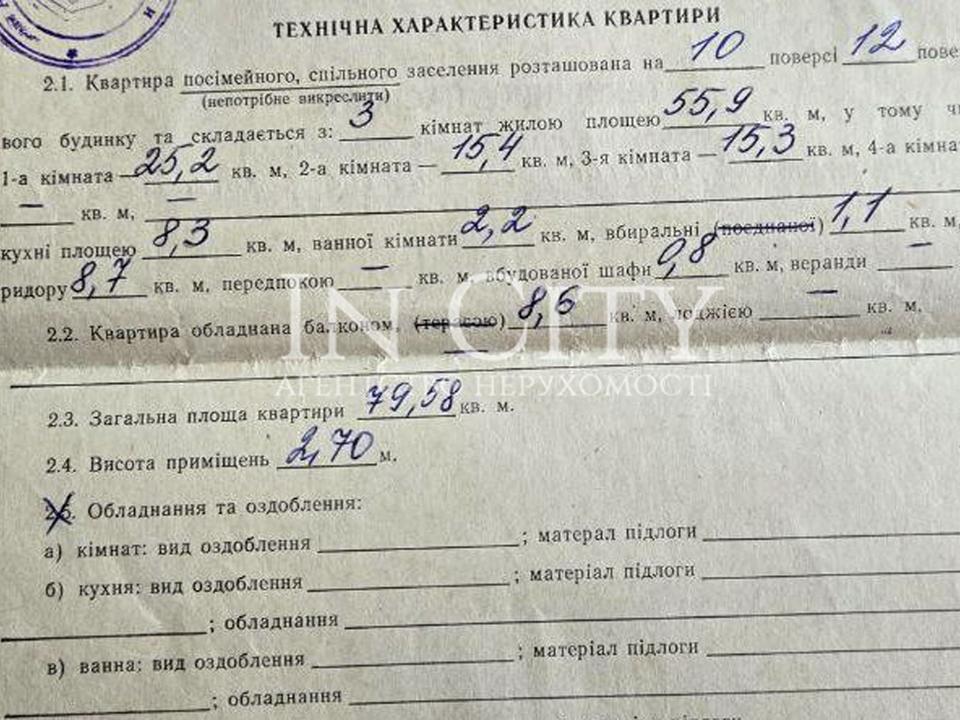 ТЕХНІЧНА ХАРАКТЕРИСТИКА КВАРТИРИ
2.1. Квартира посімейного, спільного заселення розташована на 10 поверсі 12 пове
(непотрібне викреслити)
вого будинку та складається з: 3 кімнат жилою площею 55,9 кв. м, у тому чи
1-а кімната — 25,2 кв. м, 2-а кімната — 15,4 кв. м, 3-я кімната — 15,3 кв. м, 4-а кімнат
— кв. м, —
кухні площею 8,3 кв. м, ванної кімнати 2,2 кв. м, вбиральні (поєднаної) 1,1 кв. м,
ридору 8,7 кв. м, передпокою — кв. м, вбудованої шафи 0,8 кв. м, веранди —
2.2. Квартира обладнана балконом, (терасою) 8,6 кв. м, лоджією — кв. м,
—
IN CITY
АГЕНТСТВО НЕРУХОМОСТІ
2.3. Загальна площа квартири 79,58 кв. м.
2.4. Висота приміщень 2,70 м.
2.5. Обладнання та оздоблення:
а) кімнат: вид оздоблення ; матерал підлоги
б) кухня: вид оздоблення ; матеріал підлоги
; обладнання
в) ванна: вид оздоблення ; матеріал підлоги
; обладнання